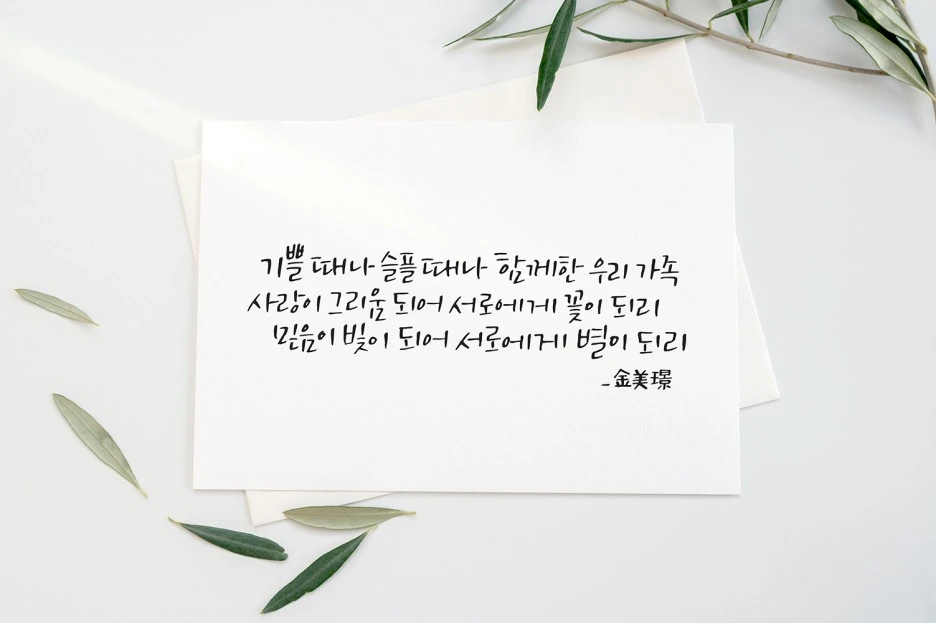 기쁠 때나 슬플 때나 함께한 우리 가족
사랑이 그리움 되어 서로에게 꽃이 되리
믿음이 빛이 되어 서로에게 별이 되리
-金美璟